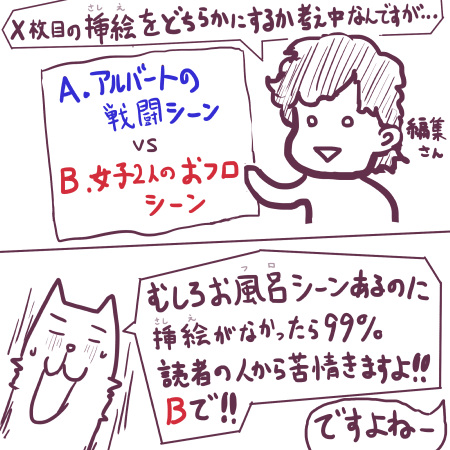 X枚目の挿絵をどちらかにするか考え中なんですが…
さしえ
A.アルバートの
戦闘シーン
VS
B.女子2人のおフロ
シーン
編集
さん
むしろお風呂シーンあるのに
フロ
挿絵がなかったら99%
さしえ
読者の人から苦情きますよ!!
Bで!!
ですよねー